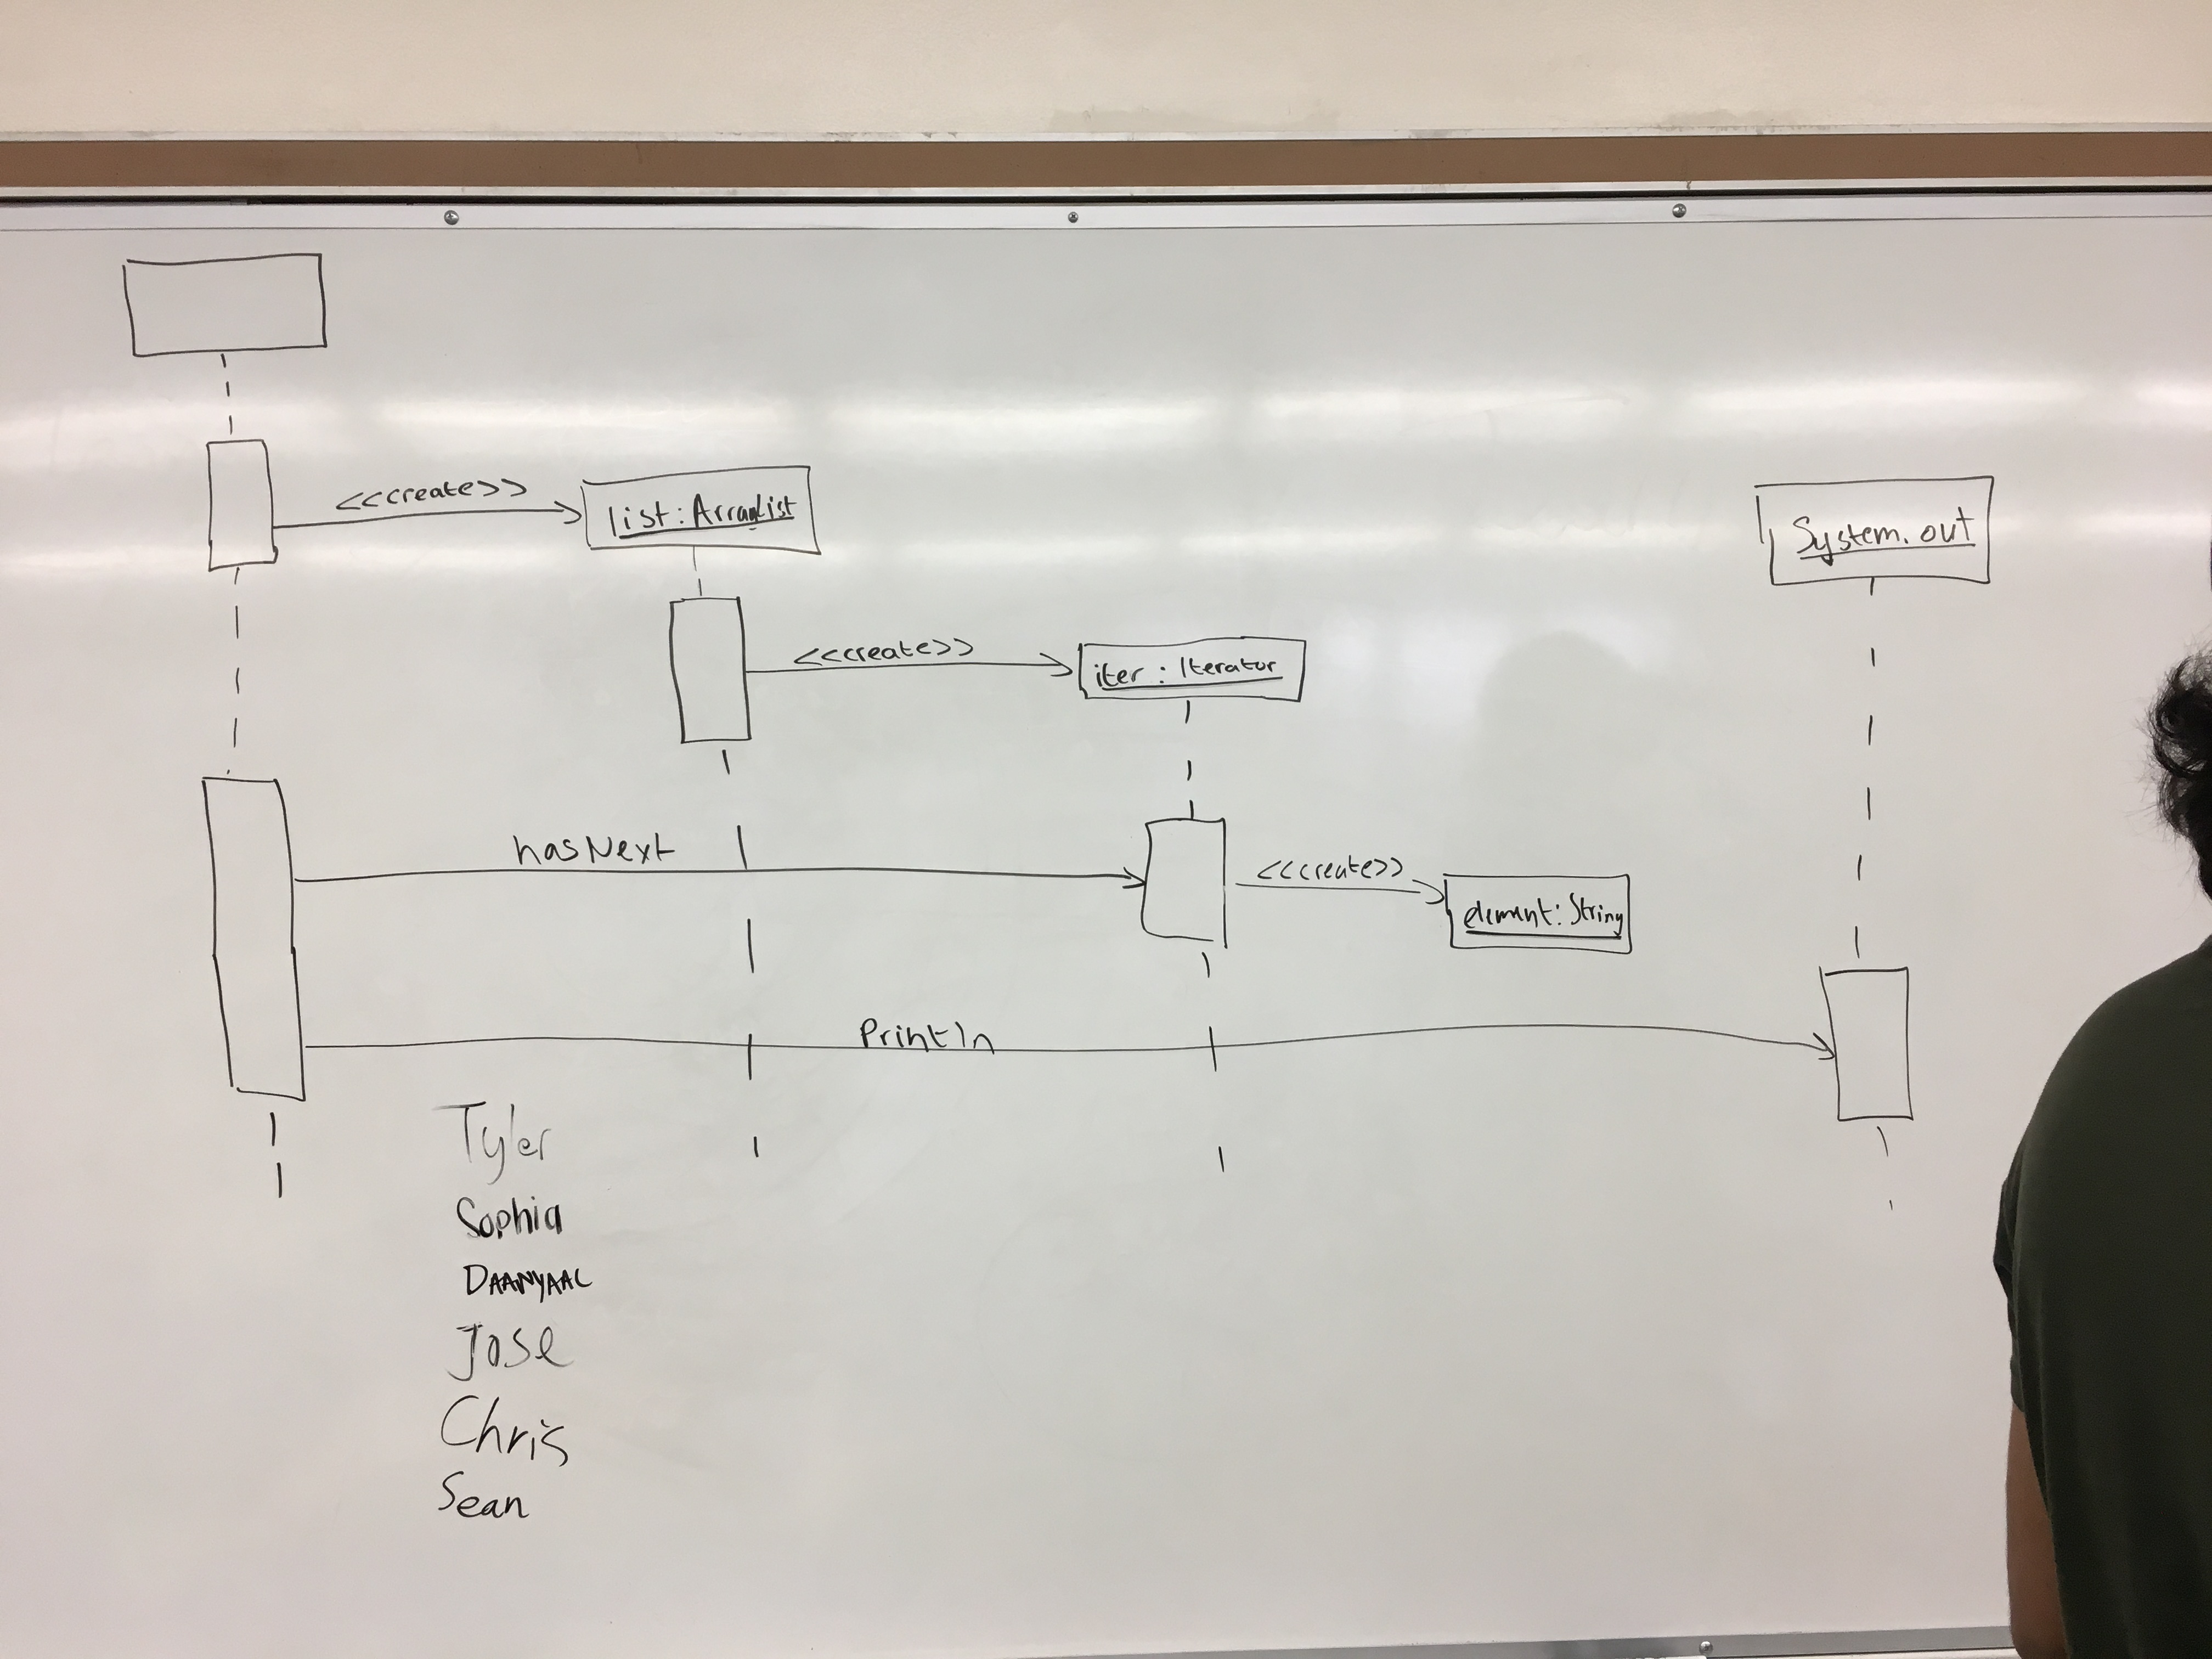 <<create>>
list:Arraylist
System.out
<<create>>
iter : Iterator
hasNext
<<create>>
element:String
Println
Tyler
Sophia
DAANYAAL
Jose
Chris
Sean